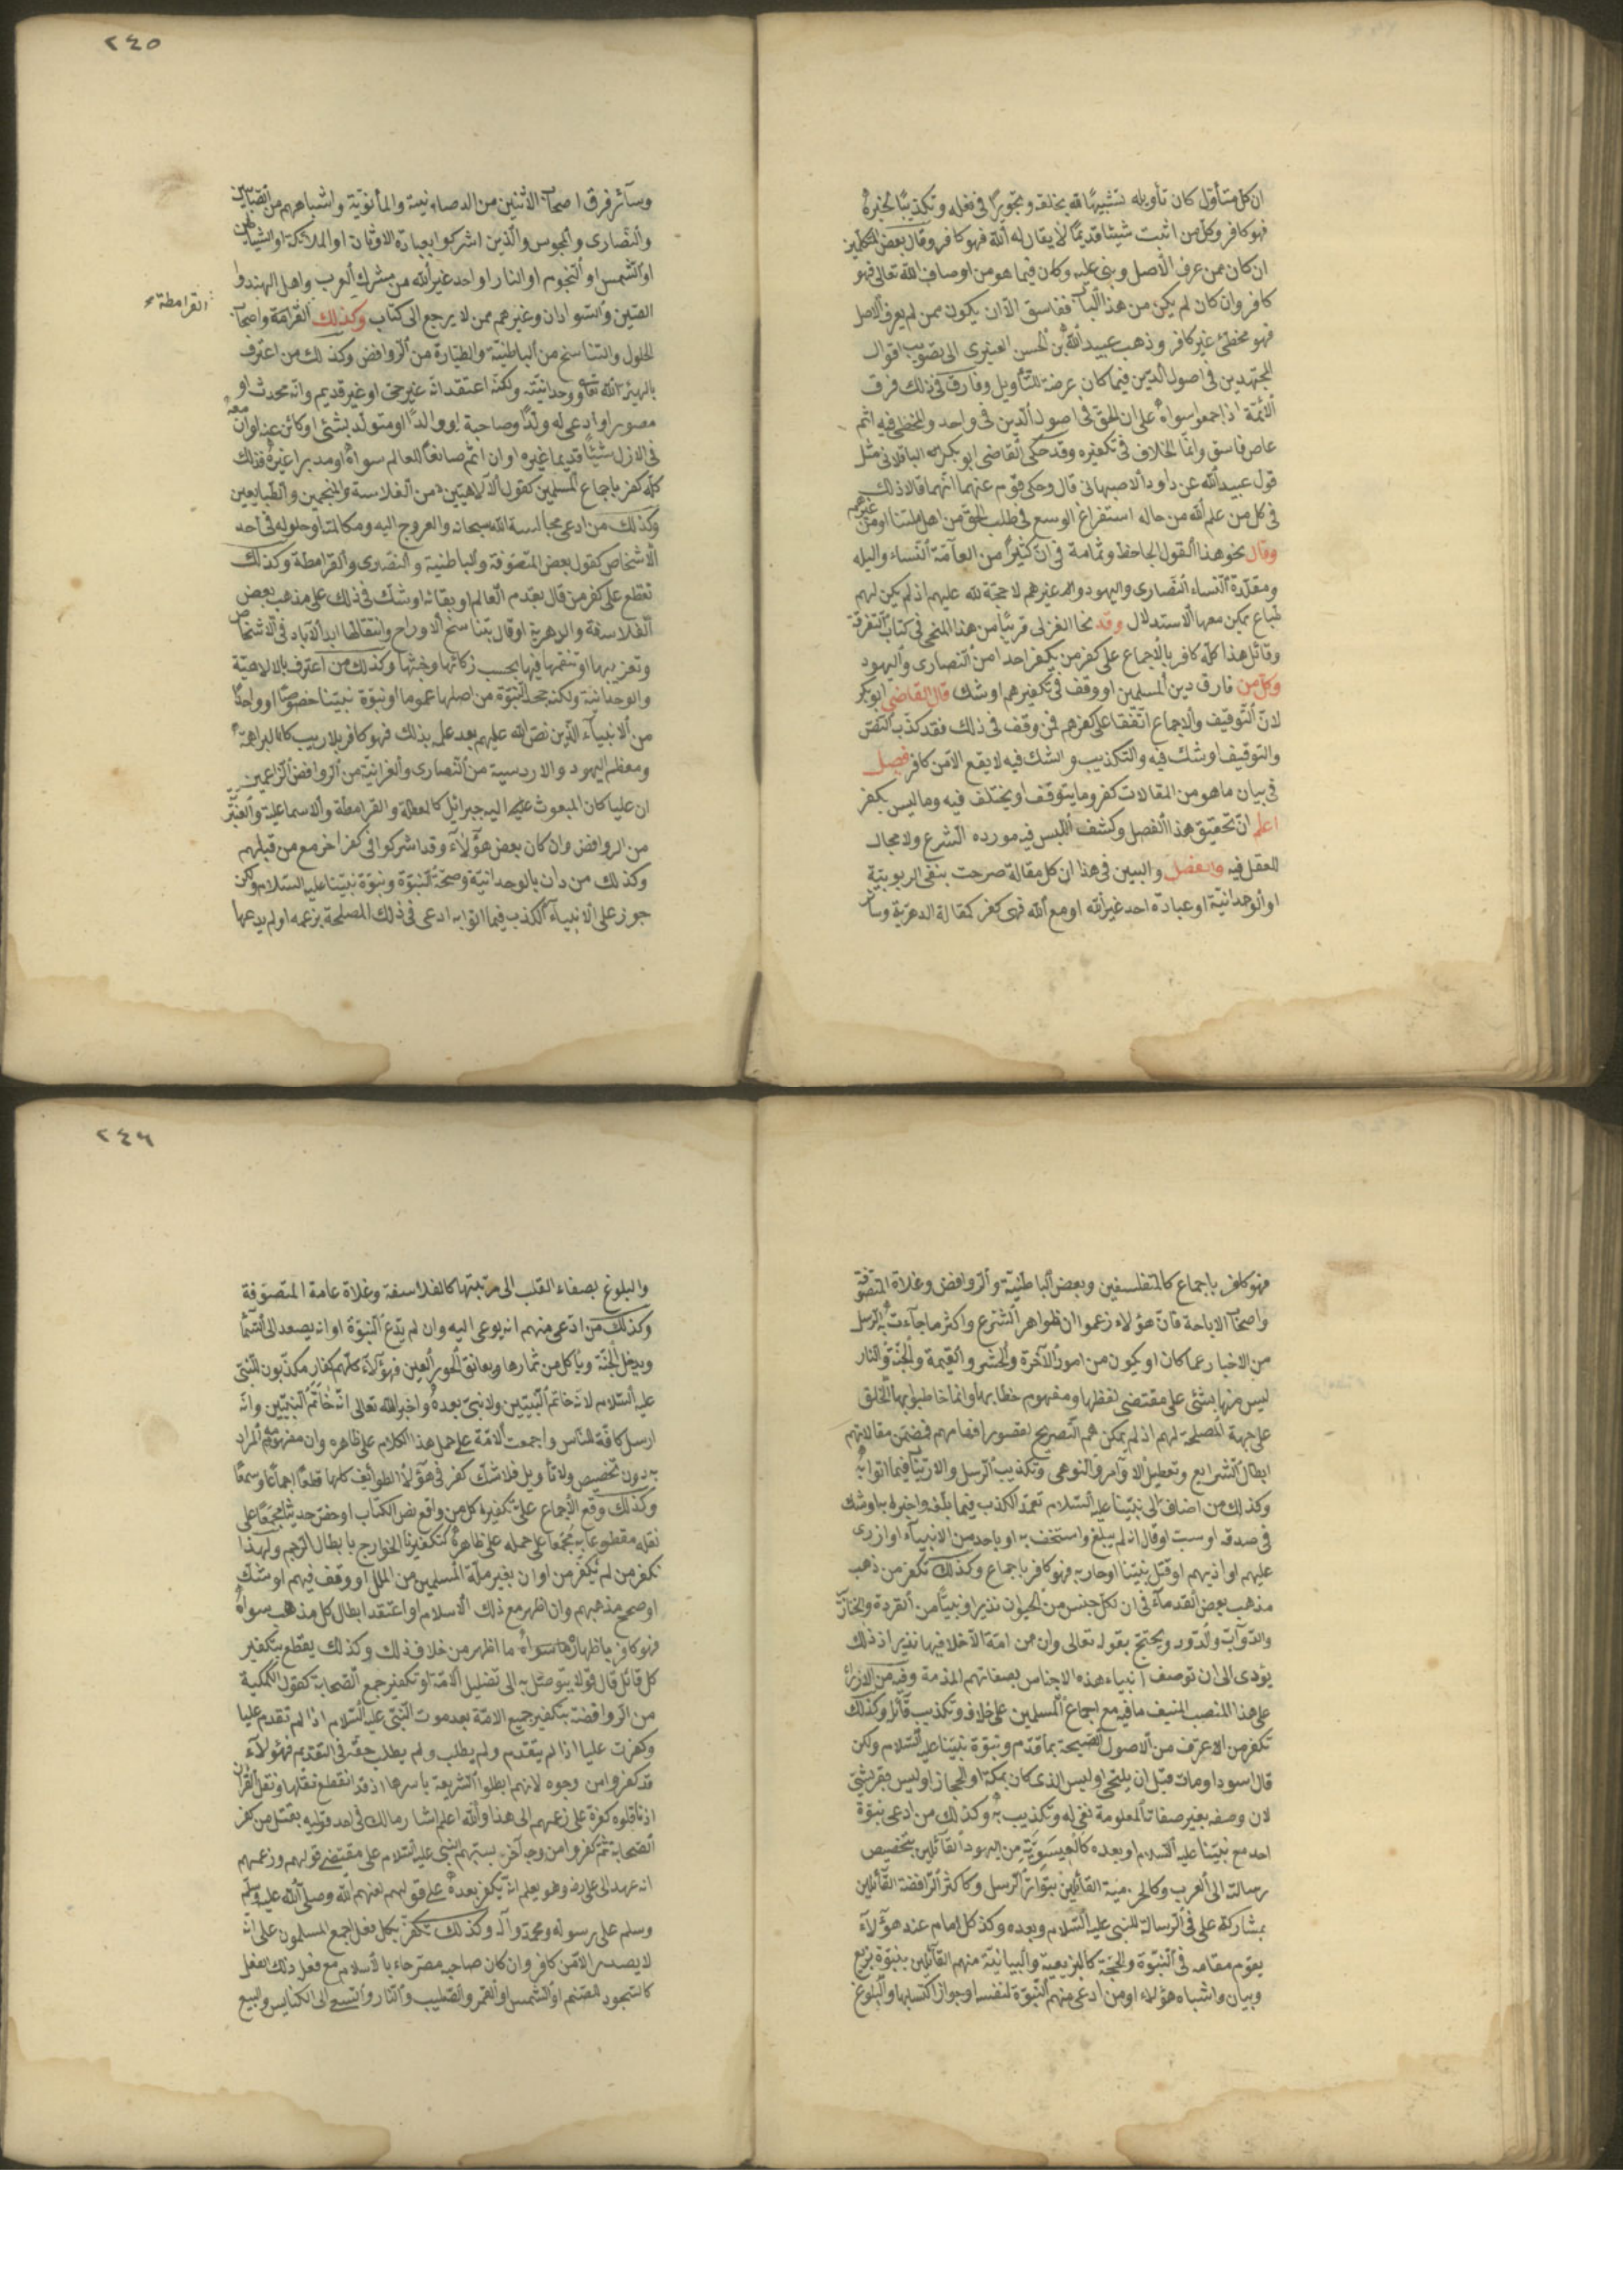 ان كل متأول كان تأويله تشبيها لله بخلقه وتجويرا في فعله وتكذيبا لخبره
فهو كافر وكل من اثبت شيئا قديما لا يقال له الله فهو كافر وقال بعض المتكلمين
ان كان ممن عرف الاصل وبنى عليه وكان فيما هو من اوصاف الله تعالى فهو
كافر وان كان لم يكن من هذا الباب ففاسق الا ان يكون ممن لم يعرف الاصل
فهو مخطئ غير كافر وذهب عبيد الله بن الحسن العنبري الى تصويب اقوال
المجتهدين في اصول الدين فيما كان عرضة للتأويل وفارق في ذلك فرق
الائمة اذ اجمعوا سواه على ان الحق في اصول الدين في واحد والمخطئ فيه اثم
عاص فاسق وانما الخلاف في تكفيره وقد حكى القاضي ابو بكر الباقلاني مثل
قول عبيد الله عن داود الاصبهاني قال وحكى قوم عنهما انهما قالا ذلك
في كل من علم الله من حاله استفراغ الوسع في طلب الحق من اهل ملتنا او من غيرهم
وقال نحو هذا القول الجاحظ وثمامة في ان كثيرا من العامة النساء والبله
ومقلدة النساء النصارى واليهود وغيرهم لا حجة لله عليهم اذ لم يكن لهم
طباع يمكن معها الاستدلال وقد نحا الغزالى قريبا من هذا المنحى في كتاب التفرقة
وقائل هذا كله كافر بالاجماع على كفر من يكفر احدا من النصارى واليهود
وكل من فارق دين المسلمين او وقف في تكفيرهم او شك قال القاضي ابو بكر
لان التوقيف والاجماع اتفقا على كفرهم فمن وقف في ذلك فقد كذب النص
والتوقيف او شك فيه والتكذيب والشك فيه لا يقع الا من كافر فصل
في بيان ما هو من المقالات كفر وما يتوقف او يختلف فيه وما ليس بكفر
اعلم ان تحقيق هذا الفصل وكشف اللبس فيه مورده الشرع ولا مجال
للعقل فيه والفصل والبين في هذا ان كل مقالة صرحت بنفي الربوبية
او الوحدانية او عبادة احد غير الله او مع الله فهي كفر كمقالة الدهرية وسائر
٢٤٥
وسآئر فرق اصحاب الاثنين من الديصانية والمانوية واشباههم من الصابئين
والنصارى والمجوس والذين اشركوا بعبادة الاوثان او الملائكة او الشياطين
او الشمس او النجوم او النار او احد غير الله من مشركي العرب واهل الهند و
الصين والسودان وغيرهم ممن لا يرجع الى كتاب وكذلك القرامة واصحاب
القرامطة
الحلول والتناسخ من الباطنية والطيارة من الروافض وكذلك من اعترف
بالهية الله تعالى ووحدانيته ولكنه اعتقد انه غير حي او غير قديم وانه محدث او
مصور او ادعى له ولدا وصاحبة او والدا او متولد بشئ او كائن عنه او ان معه
في الازل شيئا قديما غيره او ان ثم صانعا للعالم سواه او مدبرا غيره فذلك
كله كفر باجماع المسلمين كقول الالاهيين من الفلاسفة والمنجمين والطبايعين
وكذلك من ادعى مجالسة الله سبحانه والعروج اليه ومكالمته او حلوله في احد
الاشخاص كقول بعض المتصوفة والباطنية والنصارى والقرامطة وكذلك
نقطع على كفر من قال بقدم العالم او بقائه او شك في ذلك على مذهب بعض
الفلاسفة والدهرية او قال بتناسخ الارواح وانتقالها ابد الآباد في الاشخاص
وتعذيبها او تنعمها فيها بحسب زكائها وخبثها وكذلك من اعترف بالالاهية
والوحدانية ولكنه جحد النبوة من اصلها عموما او نبوة نبينا خصوصا او واحدا
من الانبيآء الذين نص الله عليهم بعد علمه بذلك فهو كافر بلا ريب كالبراهمة
ومعظم اليهود والاروسية من النصارى والغرابية من الروافض الزاعمين
ان عليا كان المبعوث اليه جبرائيل كالمعطلة والقرامطة والاسماعلية والعنبرية
من الروافض وان كان بعض هؤلآء وقد اشركوا في كفر اخر مع من قبلهم
وكذلك من دان بالوحدانية وصحة النبوة ونبوة نبينا عليه السلام ولكن
جوز على الانبيآء الكذب فيما اتوا به ادعى في ذلك المصلحة بزعمه او لم يدعها
فهو كافر باجماع كالمتفلسفين وبعض الباطنية والروافض وغلاة المتصوفة
واصحاب الاباحة فان هؤلاء زعموا ان ظواهر الشرع واكثر ما جآءت به الرسل
من الاخبار عما كان او يكون من امور الآخرة والحشر والقيمة والجنة والنار
ليس منها بشئ على مقتضى لفظها ومفهوم خطابها وانما خاطبوا بها الخلق
على جهة المصلحة لهم اذ لم يمكنهم التصريح لقصور افهامهم فضمن مقالاتهم
ابطال الشرايع وتعطيل الاوآمر والنوهى وتكذيب الرسل والارتياب فيما اتوا به
وكذلك من اضاف الى نبينا عليه السلام تعمد الكذب فيما بلغه واخبر به او شك
في صدقه او سبه او قال انه لم يبلغ او استخف به او باحد من الانبيآء او ازرى
عليهم او اذيهم او قتل نبينا او حاربه فهو كافر باجماع وكذلك نكفر من ذهب
مذهب بعض القدمآء في ان لكل جنس من الحيوان نذيرا ونبيا من القردة والخنازير
والدوآب والدود ويحتج بقوله تعالى وان من امة الا خلا فيها نذير اذ ذلك
يؤدى الى ان توصف انبياء هذه الاجناس بصفاتهم المذمة وفيه من الازراء
على هذا المنصب المنيف ما فيه مع اجماع المسلمين على خلافه وتكذيب قآئله وكذلك
نكفر من الاعترف من الاصول الصحيحة بما تقدم ونبوة نبينا عليه السلام ولكن
قال اسود او مات قبل ان يلتحى او ليس الذى كان بمكة او الحجاز او ليس بقرشي
لان وصفه بغير صفاته المعلومة نفي له وتكذيب به وكذلك من ادعى نبوة
احد مع نبينا عليه السلام او بعده كالعيسوية من اليهود القآئلين بتخصيص
رسالته الى العرب وكالخرمية القآئلين بتواتر الرسل وكاكثر الرافضة القآئلين
بمشاركة على في الرسالة للنبي عليه السلام وبعده وكذ كل امام عند هؤلآء
يقوم مقامه في النبوة والحجة كالبزيعية والبيانية منهم القآئلين بنبوة بزيع
وبيان واشباه هؤلاء او من ادعى منهم النبوة لنفسه او جواز اكتسابها والبلوغ
٢٤٦
والبلوغ بصفاء القلب الى مرتبتها كالفلاسفة وغلاة عامة المتصوفة
وكذلك من ادعى منهم انه يوحى اليه وان لم يدع النبوة او انه يصعد الى السما
ويدخل الجنة ويأكل من ثمارها ويعانق الحور العين فهؤلآء كلهم كفار مكذبون للنبي
عليه السلام لانه خاتم النبيين ولا نبي بعده واخبر الله تعالى انه خاتم النبيين وانه
ارسل كافة للناس واجمعت الامة على حمل هذا الكلام على ظاهره وان مفهومه المراد
به دون تخصيص ولا تأويل فلا شك كفر في هؤلاء الطوائف كلها قطعا اجماعا وسمعا
وكذلك وقع الاجماع على تكفيره كل من دافع نص الكتاب او خص حديثا مجمعا على
نقله مقطوعا به مجمعا على حمله على ظاهره كتكفيرنا الخوارج بابطال الرجم ولهذا
نكفر من لم يكفر من اوان بغير ملة المسلمين من الملل او وقف فيهم او شك
او صحح مذهبهم وان اظهر مع ذلك الاسلام او اعتقد ابطال كل مذهب سواه
فهو كافر باظهاره ما اظهر من خلاف ذلك وكذلك يقطع بتكفير
كل قائل قال قولا يتوصل به الى تضليل الامة او تكفير جمع الصحابة كقول الكملية
من الروافضة بتكفير جميع الامة بعد موت النبي عليه السلام اذا لم تقدم عليا
وكفرت عليا اذا لم يتقدم ولم يطلب ولم يطلب حقه في التقديم فهؤلآء
قد كفروا من وجوه لانهم بطلوا الشريعة باسرها اذ قد انقطع نقلها ونقل القرآن
اذ ناقلوه كفرة على زعمهم الى هذا والله اعلم اشار مالك في احد قوليه بقتل من كفر
الصحابة ثم كفروا من وجه آخر بسبهم النبي عليه السلام على مقتضى قولهم وزعمهم
انه عهد الى على رضه وهو يعلم انه يكفر بعده على قولهم لعنهم الله وصلى الله عليه وسلم
وسلم على رسوله ومحمد وآله وكذلك نكفر بكل فعل اجمع المسلمون على انه
لا يصدر الا من كافر وان كان صاحبه مصرحا بالاسلام مع فعل ذلك الفعل
كالسجود للصنم او الشمس او القمر والصليب والنار والسعي الى الكنايس والبيع